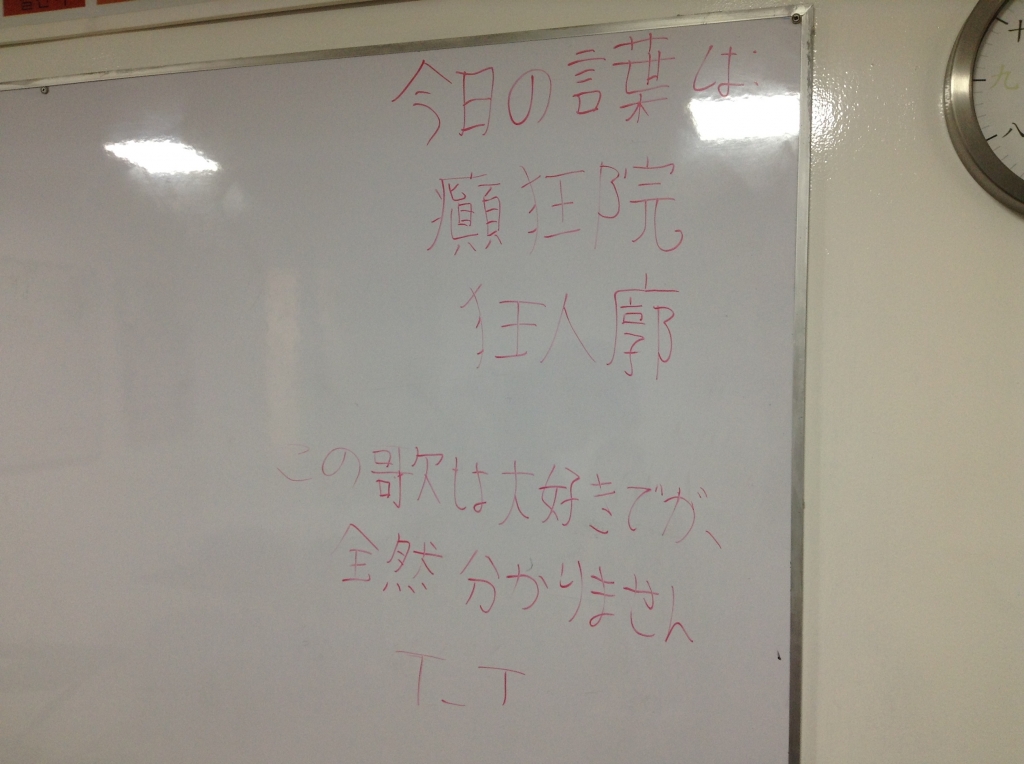 今日の言葉は、
癲狂院
狂人廓
この歌は大好きでが、
全然分かりません
T_T
十
九
八